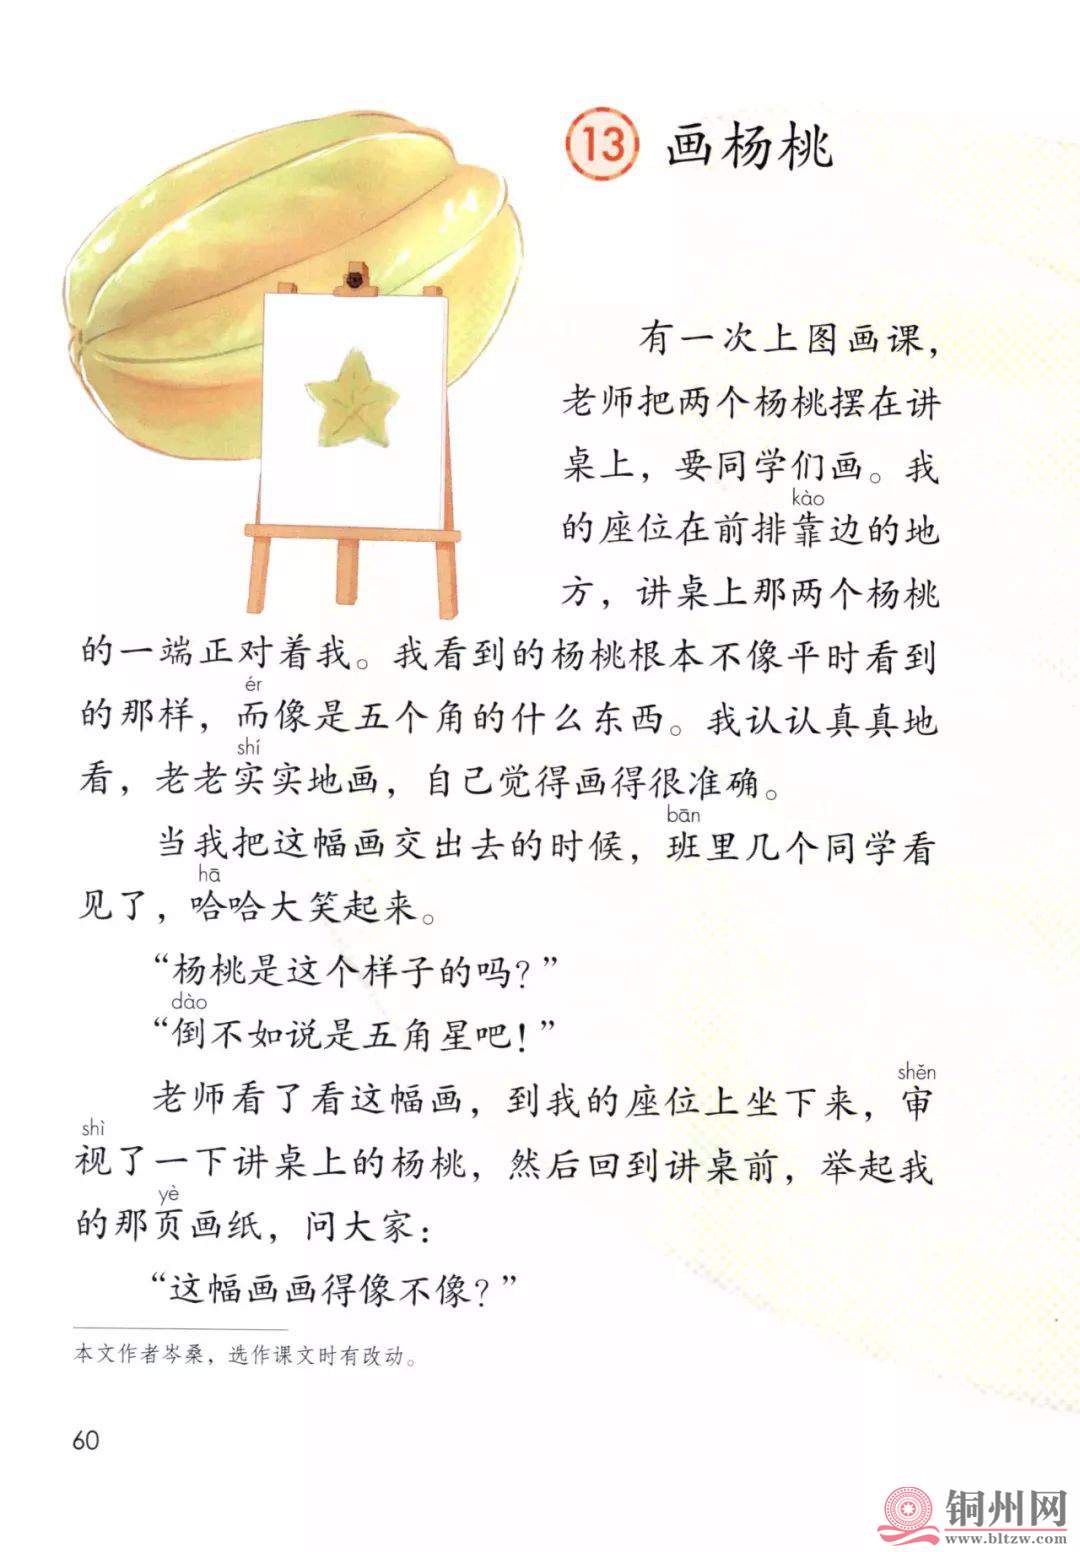 13 画杨桃
有一次上图画课，
老师把两个杨桃摆在讲
桌上，要同学们画。我
kào
的座位在前排靠边的地
方，讲桌上那两个杨桃
的一端正对着我。我看到的杨桃根本不像平时看到
ér
的那样，而像是五个角的什么东西。我认认真真地
shí
看，老老实实地画，自己觉得画得很准确。
bān
当我把这幅画交出去的时候，班里几个同学看
hā
见了，哈哈大笑起来。
“杨桃是这个样子的吗？”
dào
“倒不如说是五角星吧！”
shěn
老师看了看这幅画，到我的座位上坐下来，审
shì
视了一下讲桌上的杨桃，然后回到讲桌前，举起我
yè
的那页画纸，问大家：
“这幅画画得像不像？”
本文作者岑桑，选作课文时有改动。
60
铜州网
www.bltzw.com